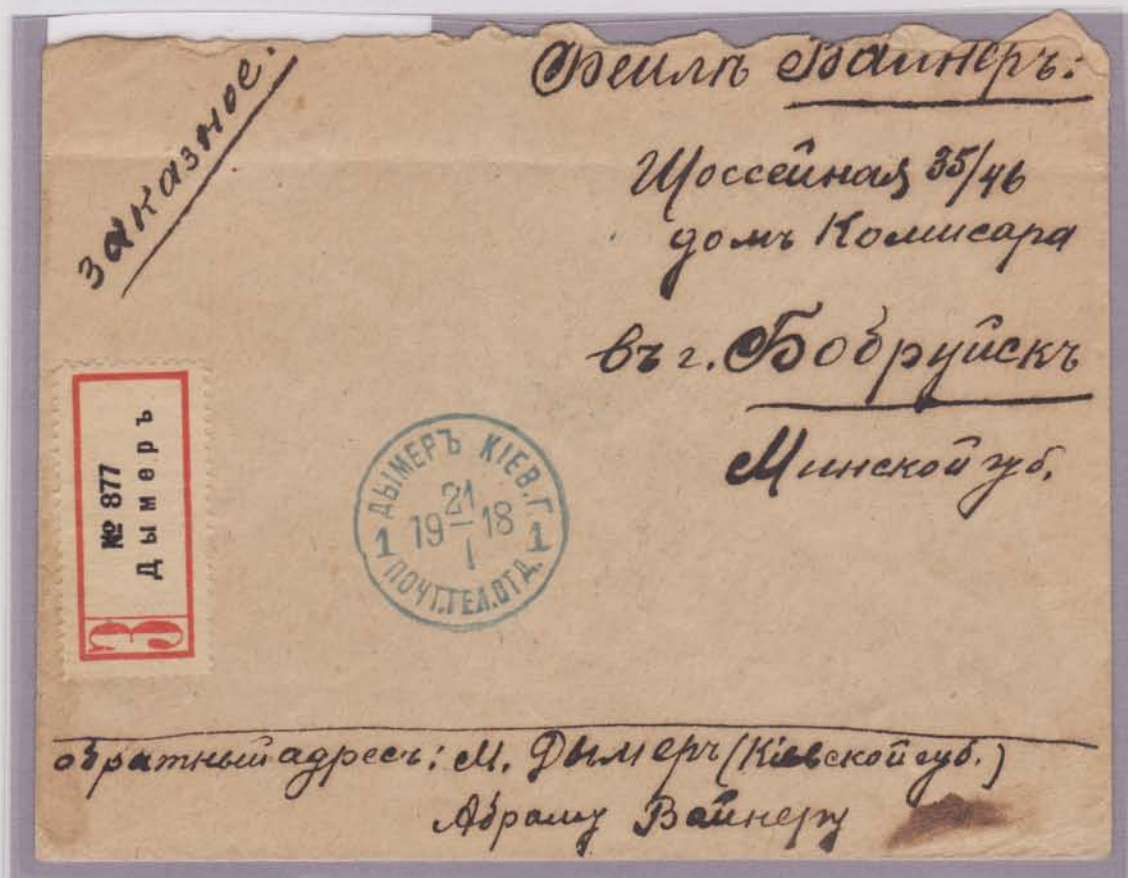 заказное.
Фейгѣ Вайнеръ:
Шоссейная 35/46
домъ Комисара
въ г. Бобруйскъ
Минской губ.
№ 877
Дымеръ
З
ДЫМЕРЪ КІЕВ.Г.
21
19 18
I
1 1
ПОЧТ.ТЕЛ.ОТД.
обратный адресъ: М. Дымеръ (Кіевской губ.)
Абраму Вайнеру